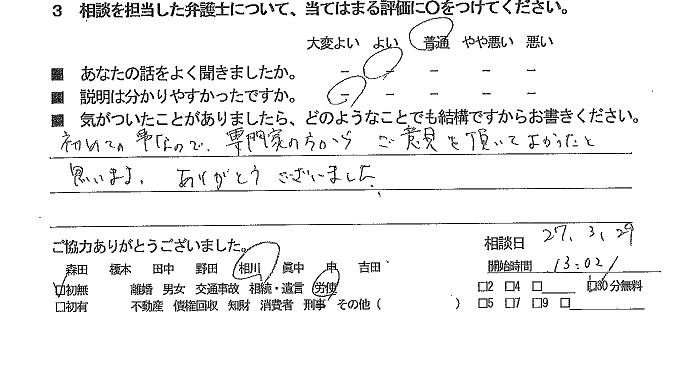 3 相談を担当した弁護士について、当てはまる評価に○をつけてください。
大変よい よい 普通 やや悪い 悪い
■ あなたの話をよく聞きましたか。 － － － － －
■ 説明は分かりやすかったですか。 － － － － －
■ 気がついたことがありましたら、どのようなことでも結構ですからお書きください。
初めての事なので、専門家の方から ご意見を頂いてよかったと
思います。 ありがとうございました。
ご協力ありがとうございました。
相談日 27.3.29
森田 榎本 田中 野田 相川 眞中 申 吉田
開始時間 13:02
□初無 離婚 男女 交通事故 相続・遺言 労使
□2 □4 □ □30分無料
□初有 不動産 債権回収 知財 消費者 刑事 その他（ ）
□5 □7 □9 □